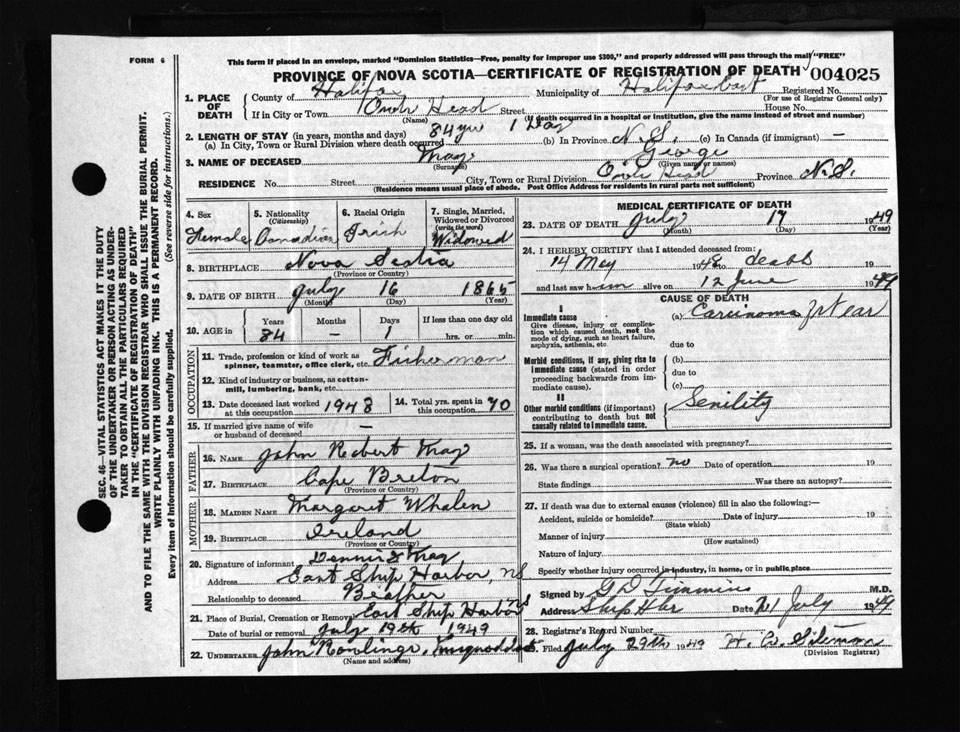 FORM 6
This form if placed in an envelope, marked "Dominion Statistics—Free, penalty for improper use $300," and properly addressed will pass through the mail "FREE"
PROVINCE OF NOVA SCOTIA—CERTIFICATE OF REGISTRATION OF DEATH 004025
1. PLACE OF DEATH County of Halifax Municipality of Halifax East Registered No.
(For use of Registrar General only)
If in City or Town Owls Head Street House No.
(Name) (If death occurred in a hospital or institution, give the name instead of street and number)
2. LENGTH OF STAY (in years, months and days) 84 yrs 1 Day
(a) In City, Town or Rural Division where death occurred (b) In Province N.S. (c) In Canada (if immigrant) —
3. NAME OF DECEASED May George
(Surname) (Given name or names)
RESIDENCE No. Street City, Town or Rural Division Owls Head Province N.S.
(Residence means usual place of abode. Post Office Address for residents in rural parts not sufficient)
4. Sex Female
5. Nationality (Citizenship) Canadian
6. Racial Origin Irish
7. Single, Married, Widowed or Divorced (write the word) Widowed
8. BIRTHPLACE Nova Scotia
(Province or Country)
9. DATE OF BIRTH July 16 1865
(Month) (Day) (Year)
10. AGE in Years Months Days If less than one day old
84 — 1 hrs. or min.
OCCUPATION
11. Trade, profession or kind of work as spinner, teamster, office clerk, etc. Fisherman
12. Kind of industry or business, as cotton-mill, lumbering, bank, etc.
13. Date deceased last worked at this occupation 1948
14. Total yrs. spent in this occupation 70
15. If married give name of wife or husband of deceased —
FATHER
16. NAME John Robert May
17. BIRTHPLACE Cape Breton
(Province or Country)
MOTHER
18. MAIDEN NAME Margaret Whalen
19. BIRTHPLACE Ireland
(Province or Country)
20. Signature of informant Dennis May
Address East Ship Harbor, NS
Relationship to deceased Brother
21. Place of Burial, Cremation or Removal East Ship Harbor NS
Date of burial or removal July 19th 1949
22. UNDERTAKER John Rowlings
(Name and address)
MEDICAL CERTIFICATE OF DEATH
23. DATE OF DEATH July 17 1949
(Month) (Day) (Year)
24. I HEREBY CERTIFY that I attended deceased from:
14 May 1948 to death 19
and last saw him alive on 12 June 1949
CAUSE OF DEATH
I
Immediate cause (a) Carcinoma Rt ear
Give disease, injury or complication which caused death, not the mode of dying, such as heart failure, asphyxia, asthenia, etc.
due to
Morbid conditions, if any, giving rise to immediate cause (stated in order proceeding backwards from immediate cause).
(b)
due to
(c)
II
Other morbid conditions (if important) contributing to death but not causally related to immediate cause. Senility
25. If a woman, was the death associated with pregnancy?
26. Was there a surgical operation? no Date of operation 19
State findings Was there an autopsy?
27. If death was due to external causes (violence) fill in also the following:—
Accident, suicide or homicide? Date of injury 19
(State which)
Manner of injury
(How sustained)
Nature of injury
Specify whether injury occurred in industry, in home, or in public place
Signed by G D Timmins M.D.
Address Ship Hbr Date 21 July 1949
28. Registrar's Record Number
29. Filed July 29th 1949
(Division Registrar)
SEC. 46—VITAL STATISTICS ACT MAKES IT THE DUTY
OF THE UNDERTAKER OR PERSON ACTING AS UNDER-
TAKER TO OBTAIN ALL THE PARTICULARS REQUIRED
IN THE "CERTIFICATE OF REGISTRATION OF DEATH"
AND TO FILE THE SAME WITH THE DIVISION REGISTRAR WHO SHALL ISSUE THE BURIAL PERMIT.
WRITE PLAINLY WITH UNFADING INK. THIS IS A PERMANENT RECORD.
Every item of Information should be carefully supplied. (See reverse side for instructions.)